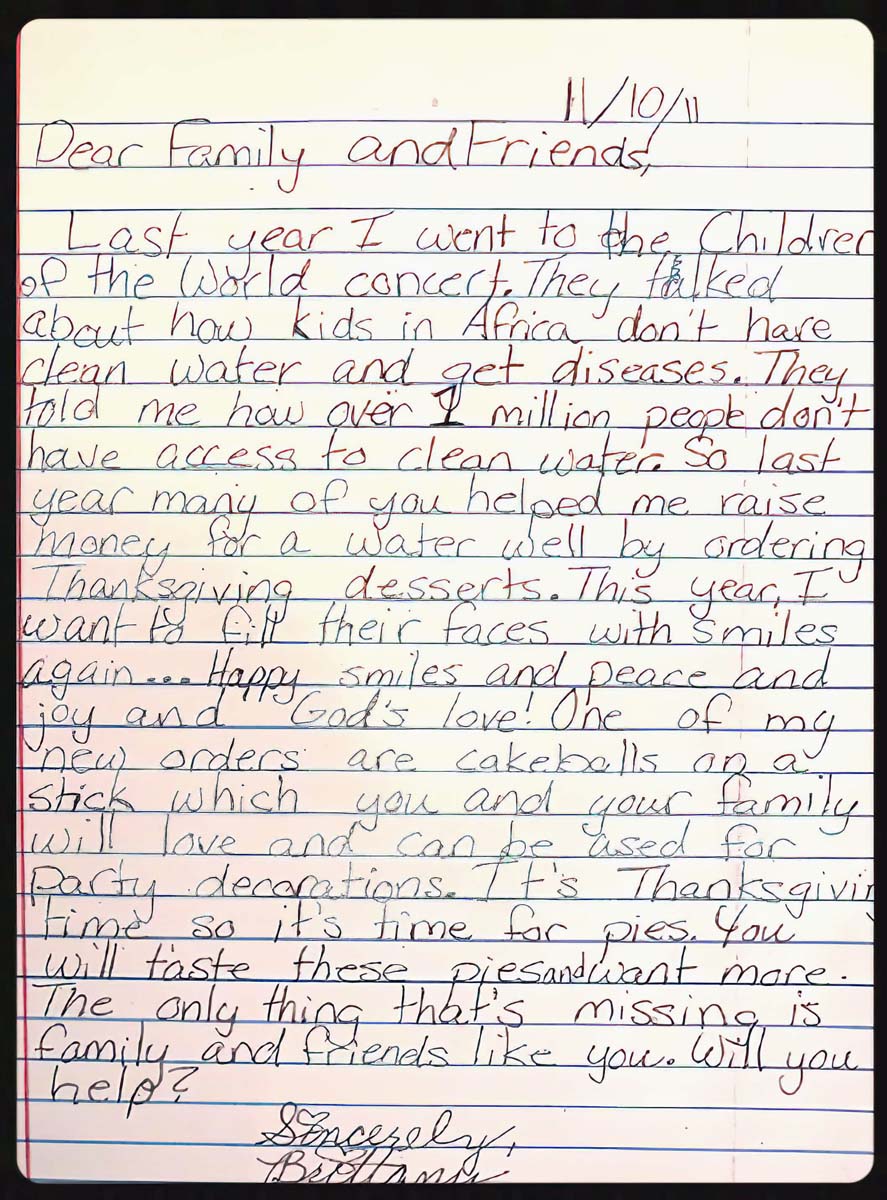 11/10/11
Dear Family and Friends,
Last year I went to the Children
of the World concert. They talked
about how kids in Africa don't have
clean water and get diseases. They
told me how over 1 million people don't
have access to clean water. So last
year many of you helped me raise
money for a water well by ordering
Thanksgiving desserts. This year, I
want to fill their faces with smiles
again... Happy smiles and peace and
joy and God's love! One of my
new orders are cakeballs on a
stick which you and your family
will love and can be used for
party decorations. It's Thanksgivin
time so it's time for pies. You
will taste these pies and want more.
The only thing that's missing is
family and friends like you. Will you
help?
Sincerely,
Brittany